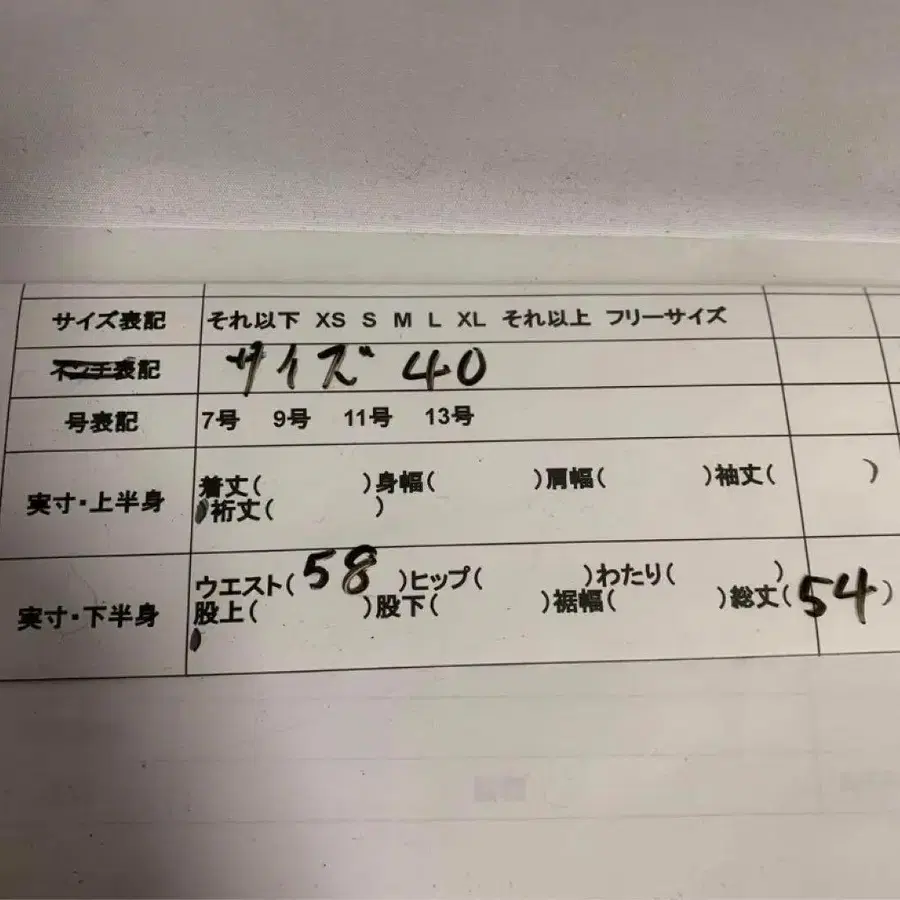 サイズ表記 それ以下 XS S M L XL それ以上 フリーサイズ
インチ表記 サイズ 40
号表記 7号 9号 11号 13号
実寸・上半身 着丈( )身幅( )肩幅( )袖丈( )
裄丈( )
実寸・下半身 ウエスト(58)ヒップ( )わたり( )
股上( )股下( )裾幅( )総丈(54)